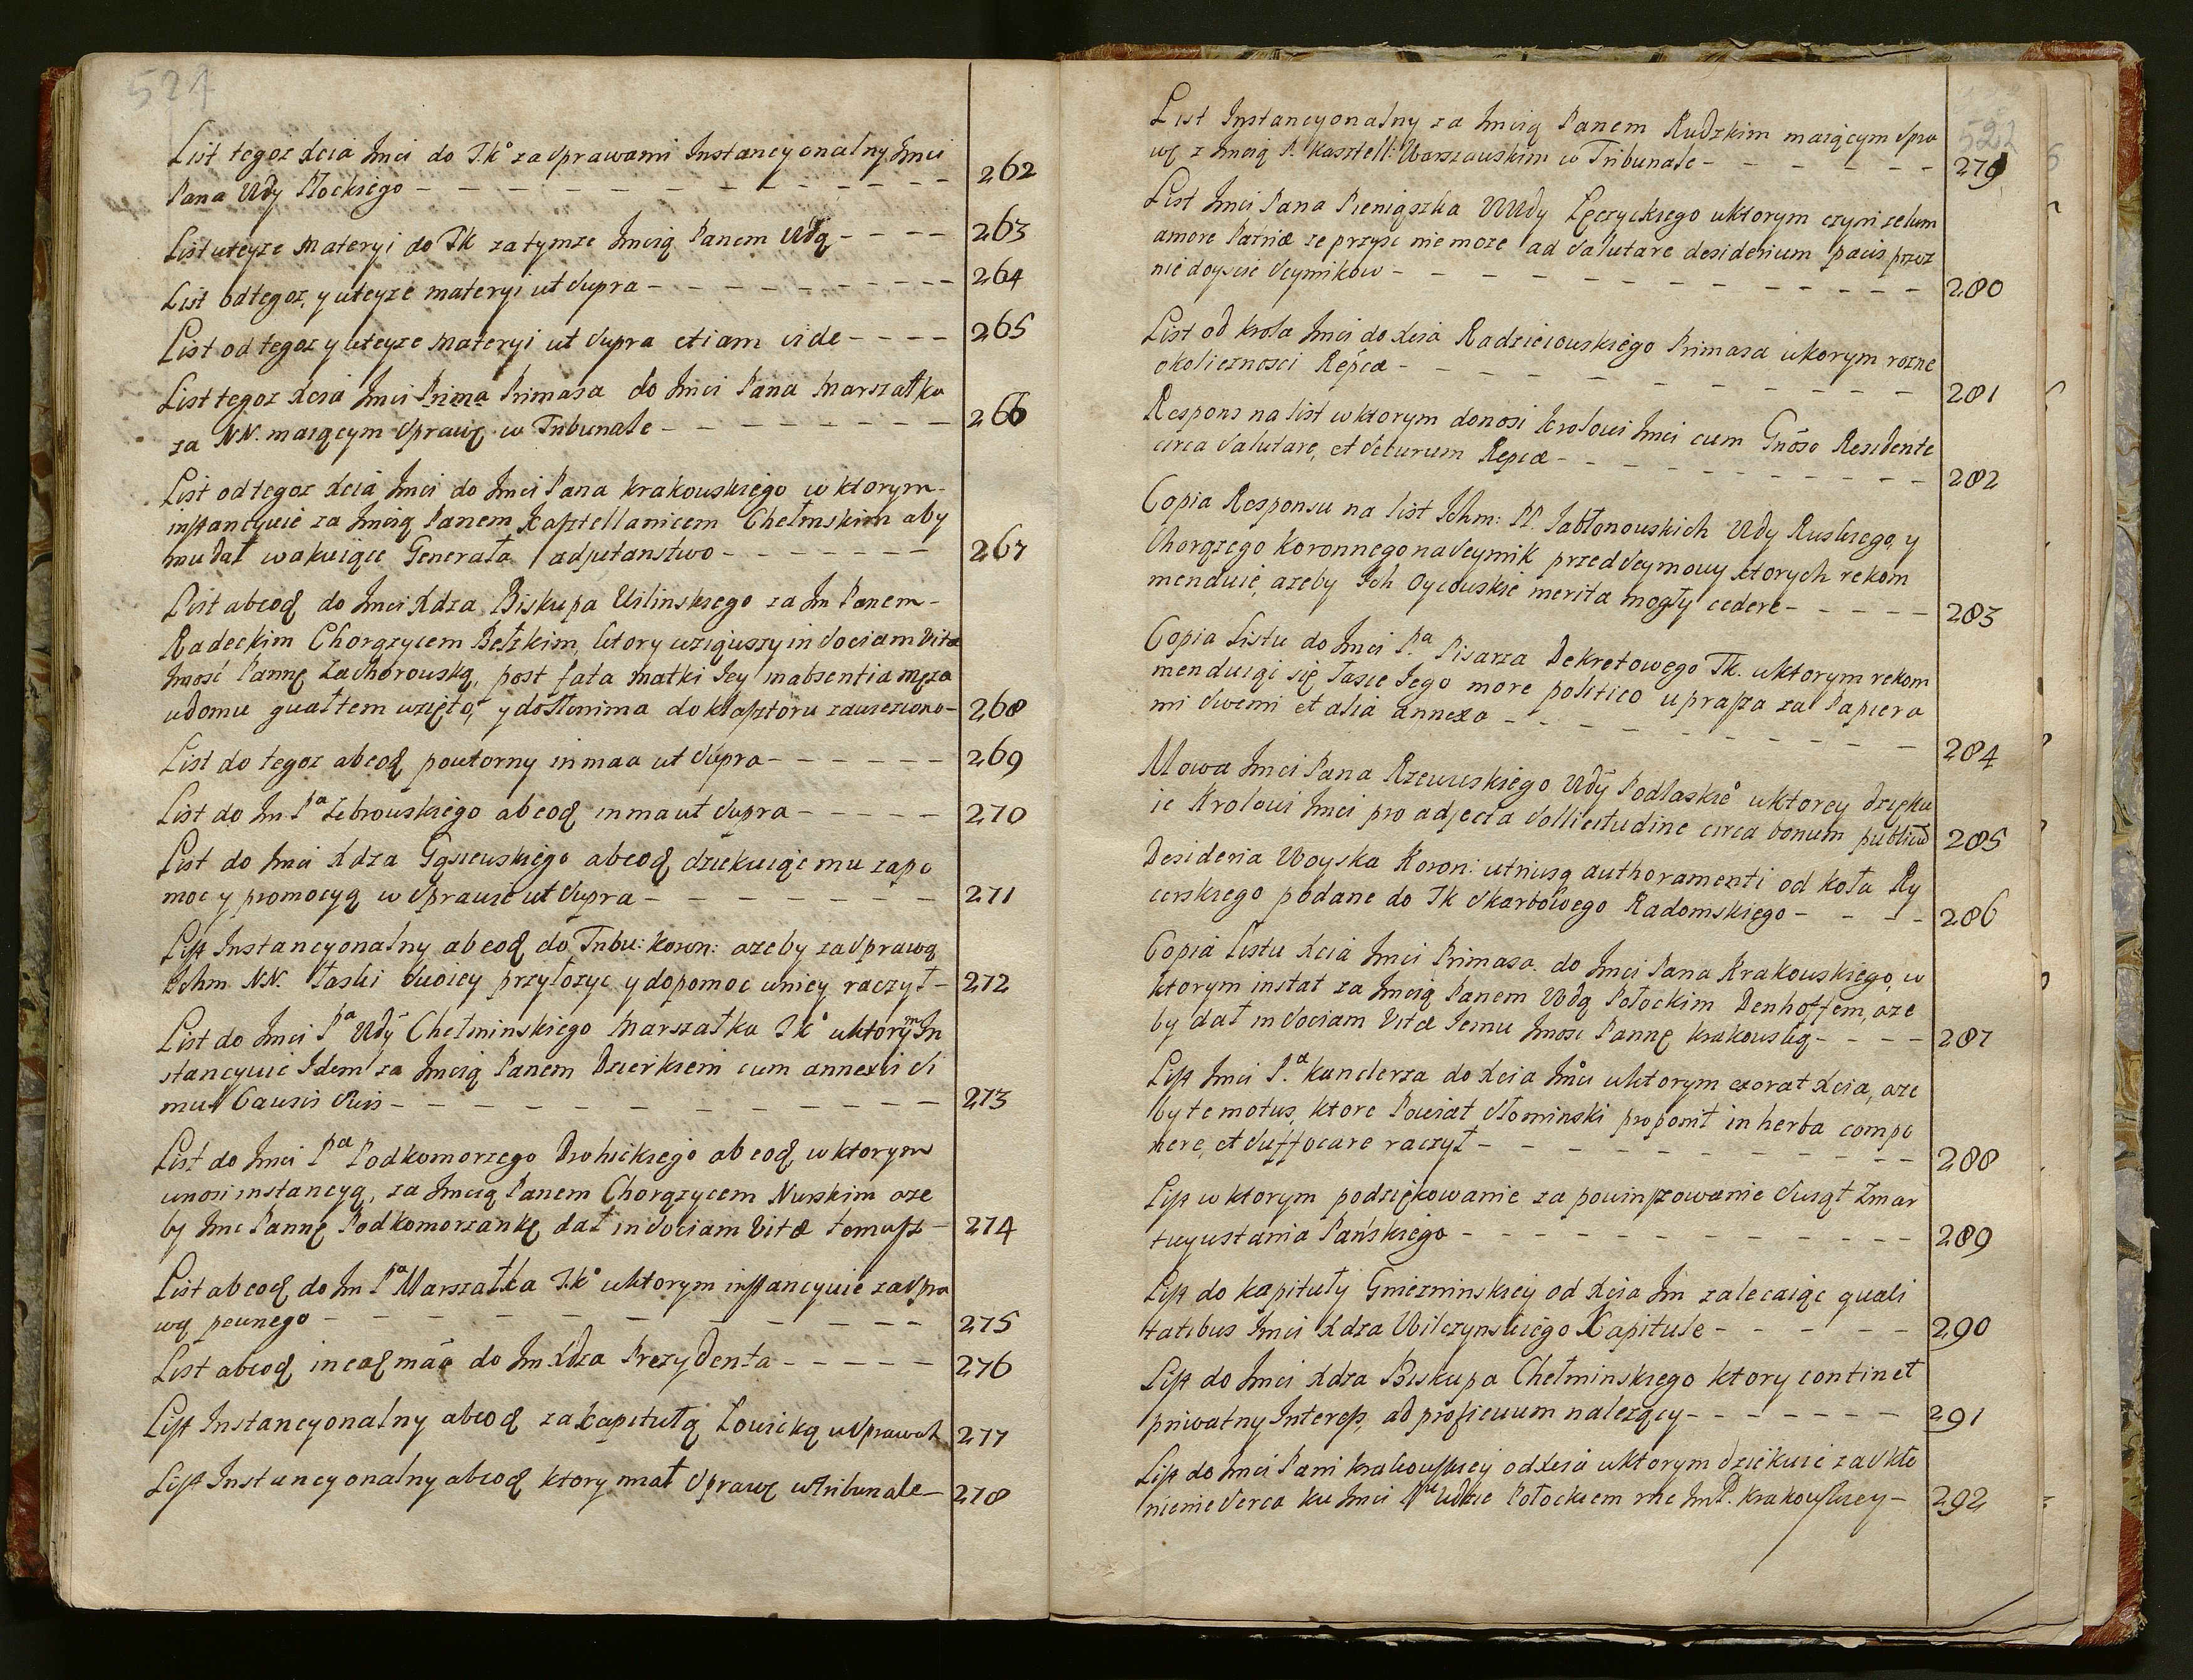 521
List tegoz Xcia Jmci do T.k° za Sprawami Instancyonalny Jmci
Pana Wdy Płockiego - - - 262
List uteyze Materyi do Tk za tymze Jmcią Panem Wdą - - - 263
List od tegoz, y uteyze materyi ut Supra - - - 264
List od tegoz y uteyze Materyi ut Supra etiam vide - - - 265
List tegoz Xcia Jmci Prima Primasa do Jmci Pana Marszałka
za NN. maiącym Sprawę w Tribunale - - - 266
List od tegoz Xcia Jmci do Jmci Pana Krakowskiego w ktorym
instancyuie za Jmcią Panem Kasztellanicem Chełmskim aby
mu dał wakuiące Generała adjutanstwo - - - 267
List abeoq do Jmci Xdza Biskupa Wilinskiego za Jm Panem
Radeckim Chorązycem Bełzkim, ktory wziąwszy in Sociam Vitæ
Jmość Pannę Zachorowską, post fata Matki Jey in absentia męza
udomu gwałtem wzięto, y do Słonima do klasztoru zawieziono - 268
List do tegoz abeoq powtorny in maa ut Supra - - - 269
List do Jm Pa Zebrowskiego abeoq in ma ut Supra - - - 270
List do Jmci Xdza Gąsiewskiego abeoq dziekuiąc mu za po
moc y promocyą w Sprawie ut Supra - - - 271
List Instancyonalny abeoq do Tribu: Koron: azeby za Sprawą
Ichm NN. łaski Swoiey przyłozyc y dopomoc wniey raczył - 272
List do Jmci Pa Wdy Chełminskiego Marszałka Tk° w ktorym In
stancyuie Idem za Jmcią Panem Dzierkiem cum annexis Si
mul Causis Suis - - - 273
List do Jmci Pa Podkomorzego Drohickiego ab eoq w ktorym
wnosi instancyą, za Jmcią Panem Chorązycem Nurskim aze
by Jmc Pannę Podkomorzankę dał in Sociam Vitæ temusz - 274
List abeoq do Jm Pa Marszałka T.k° w ktorym instancyuie za Spra
wą pewnego - - - 275
List abeoq in eaq mãa do Jm Xdza Prezydenta - - - 276
List Instancyonalny abeoq za kapitułą Łowicką w Sprawach 277
List Instancyonalny abeoq ktory miał Sprawę w Tribunale - 278
522
List Instancyonalny za Jmcią Panem Rudzkim maiącym Spra
wę z Jmcią P. Kasztell: Warszawskim w Tribunale - - - 279
List Jmci Pana Pieniąszka WWdy Łęczyckiego w ktorym czyni zelum
amore Patriæ ze przysc nie moze ad Salutare desiderium pacis przez
nie doyscie Seymikow - - - 280
List od krola Jmci do Xcia Radzieiowskiego Primasa w korym rozne
okolicznosci Rẽpcæ - - - 281
Respons na list w ktorym donosi krolowi Jmci cum Gnõso Residente
circa Salutare, et Securum Repcæ - - - 282
Copia Responsu na list Ichm: PP. Jabłonowskich Wdy Ruskiego, y
Chorązego Koronnego na Seymik przed Seymowy ktorych rekom
menduie, azeby Ich Oycowskie merita mogły cedere - - - 283
Copia Listu do Jmci Pa Pisarza Dekretowego Tk. w ktorym rekom
menduiąi się łasce Jego more politico uprasza za Papiera
mi Swemi et alia annexa - - - 284
Mowa Jmci Pana Rzewuskiego Wdy Podlaskie° w ktorey dzięku
ie Krolowi Jmci pro adjecta Sollicitudine circa bonum publicũ 285
Desideria Woyska Koron: utriusq authoramenti od koła Ry
cerskiego podane do Tk Skarbowego Radomskiego - - - 286
Copia Listu Xcia Jmci Primasa do Jmci Pana Krakowskiego, w
ktorym instat za Jmcią Panem Wdą Połockim Denhoffem, aze
by dał in Sociam Vitæ Jemu Jmosc Pannę krakowską - - - 287
List Jmci P.a kanclerza do Xcia Jmci w ktorym exorat Xcia, aze
by te motus, ktore Powiat Słominski proponit in herba compo
nere, et Suffocare raczył - - - 288
List w ktorym podziękowanie za powinszowanie Swiąt Zmar
twywstania Pańskiego - - - 289
List do kapituły Gniezninskiey od Xcia Jm zalecaiąc quali
tatibus Jmci Xdza Wilczynskiego Kapitule - - - 290
List do Jmci Xdza Biskupa Chełminskiego ktory continet
priwatny Interess, ad proficuum nalezący - - - 291
List do Jmci Pani krakowskiey od Xcia w ktorym dziekuie za Skło
nienie Serca ku Jmci Wdzie Połockiem rzc JmP. krakowskiey - 292